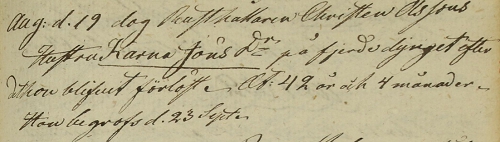 Aug: d. 19 dog Rusthållaren Christen Olssons
Hustru Karna Jöns Dr på fjerde dygnet efter
det hon blifvit förlöst. Æt: 42 år och 4 månader.
Hon begrofs d. 23 Sept.